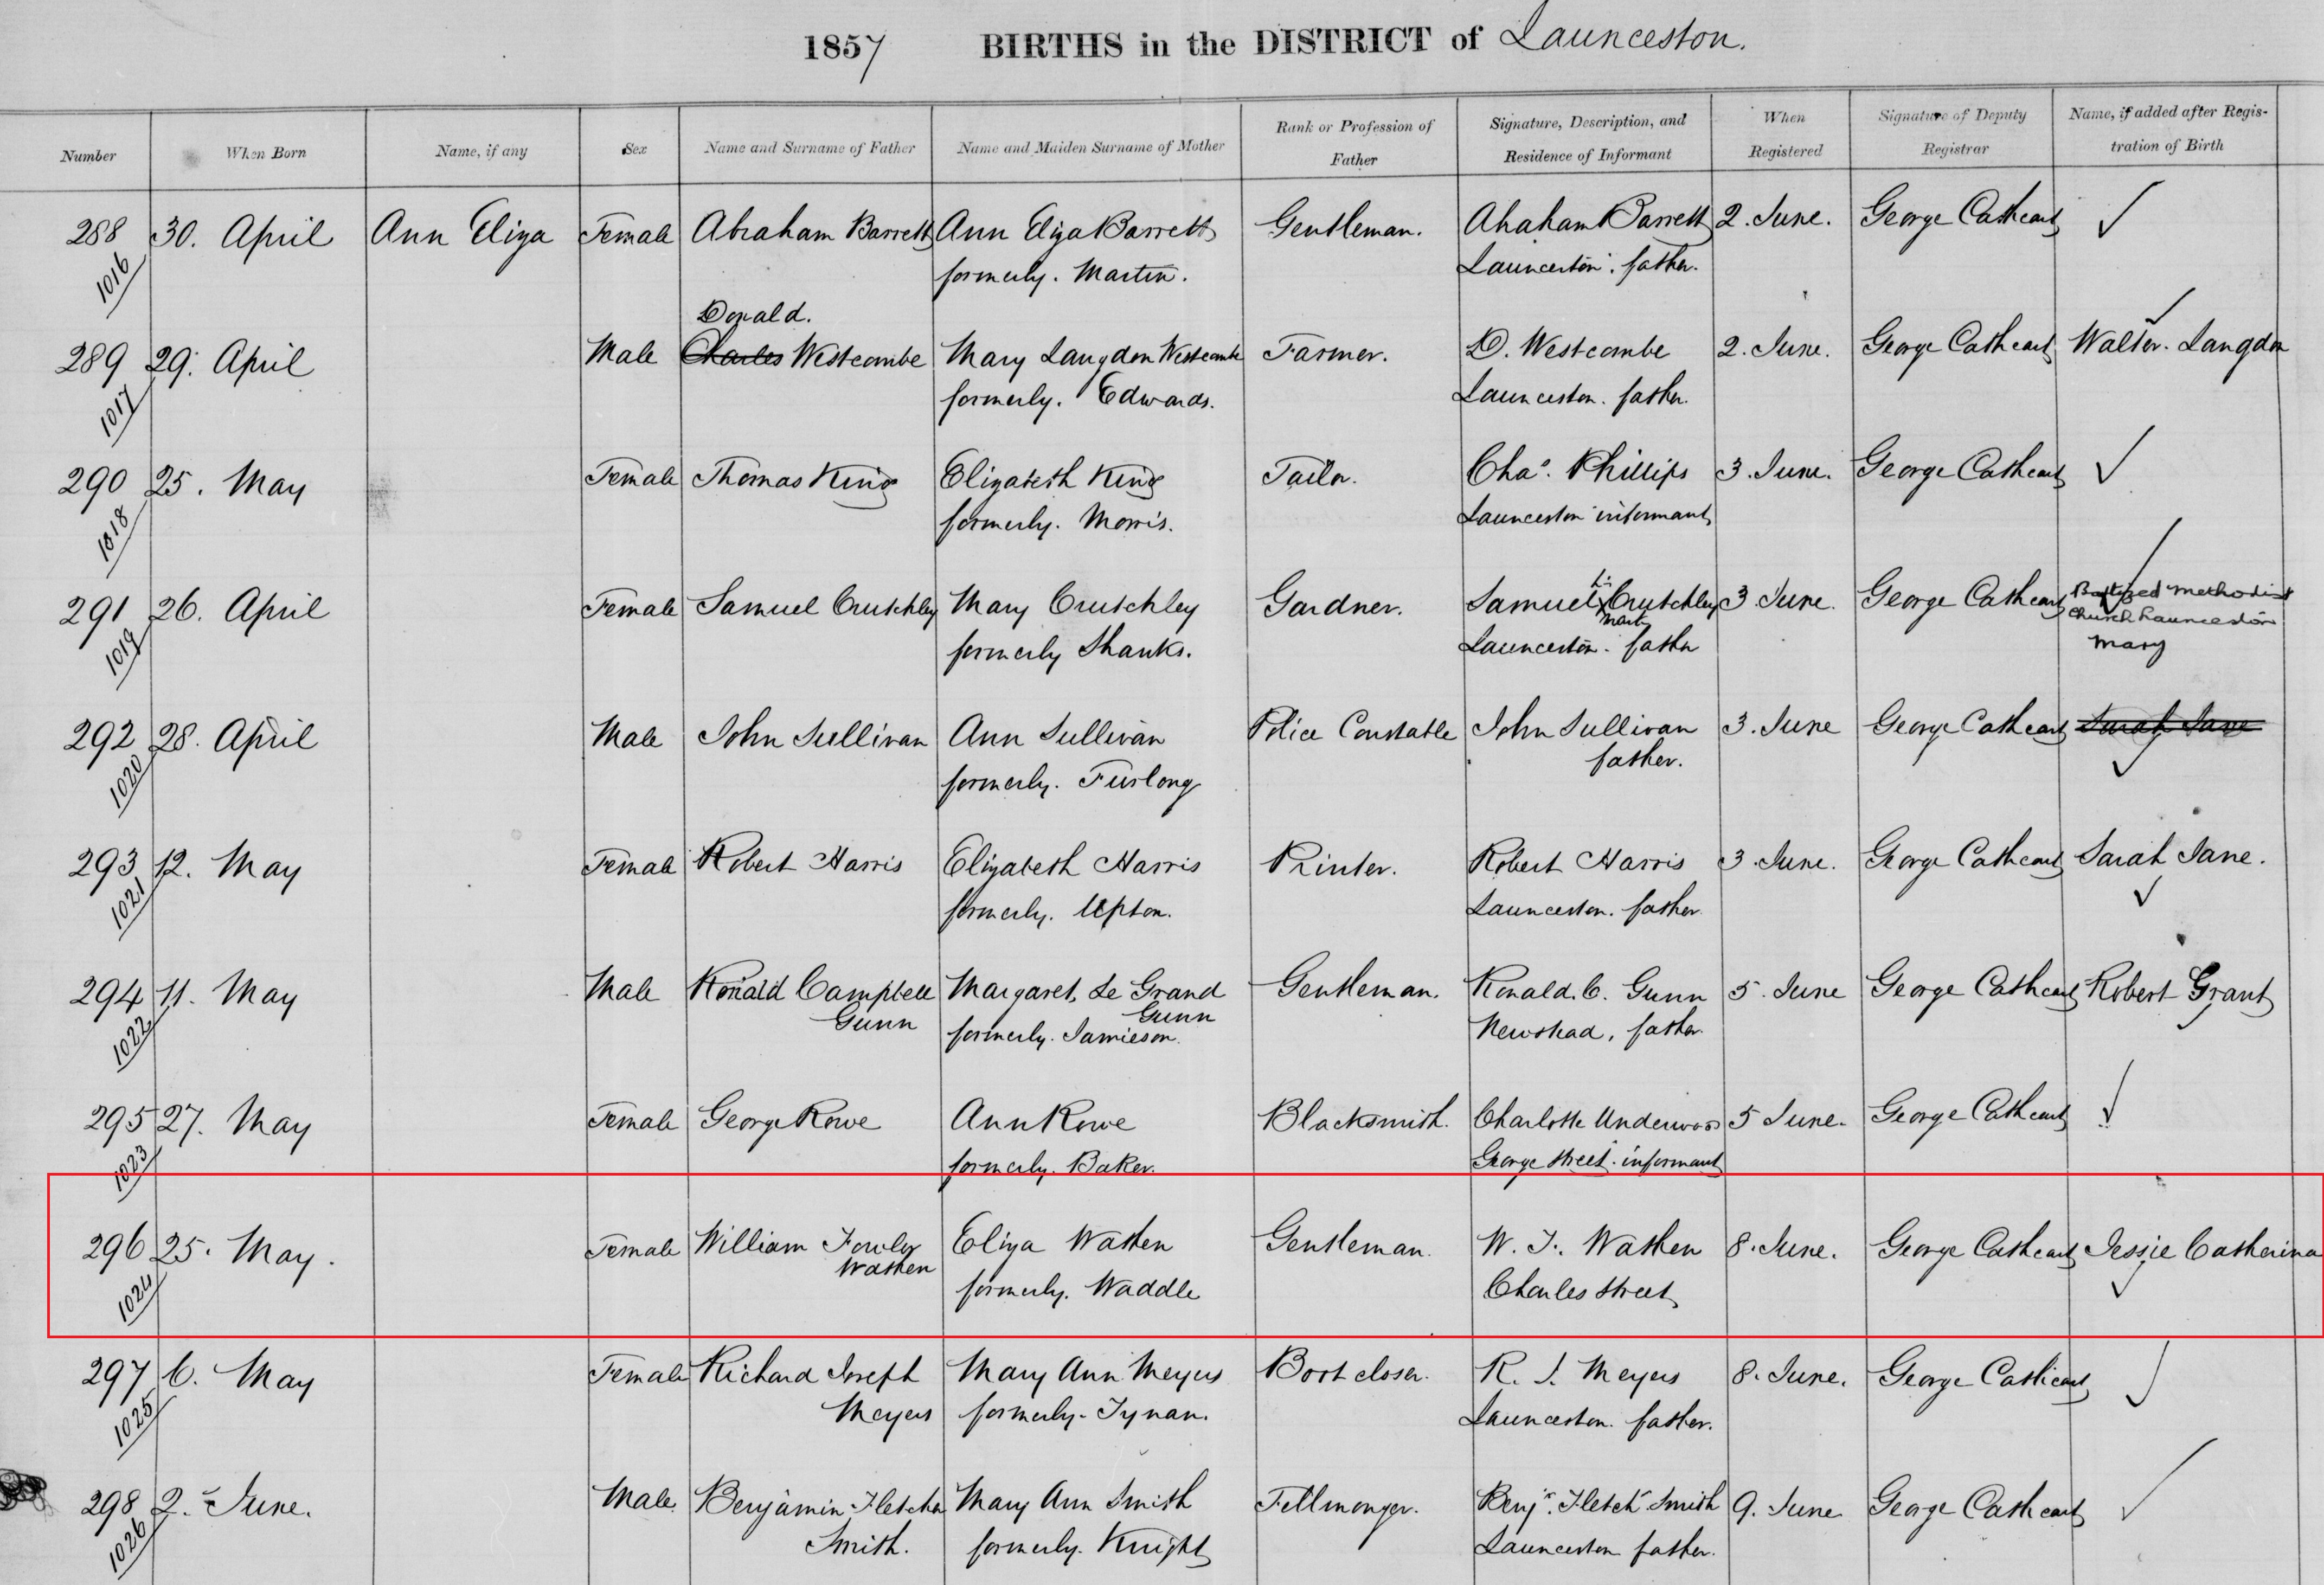 1857 BIRTHS in the DISTRICT of Launceston.
Number When Born Name, if any Sex Name and Surname of Father Name and Maiden Surname of Mother Rank or Profession of Father Signature, Description, and Residence of Informant When Registered Signature of Deputy Registrar Name, if added after Registration of Birth
288 30. April Ann Eliza Female Abraham Barrett Ann Eliza Barrett Gentleman. Abraham Barrett 2. June. George Cathcart
1016 formerly. Martin. Launceston. father.
Donald.
289 29. April Male Charles Westcombe Mary Langdon Westcombe Farmer. D. Westcombe 2. June. George Cathcart Walter. Langdon
1017 formerly. Edwards. Launceston. father.
290 25. May Female Thomas King Elizabeth King Tailor. Chas. Phillips 3. June. George Cathcart
1018 formerly. Morris. Launceston informant
291 26. April Female Samuel Crutchley Mary Crutchley Gardner. Samuel X Crutchley 3 June. George Cathcart Baptized Methodist
mark Church Launceston
1019 formerly Shanks. Launceston. father Mary
292 28. April Male John Sullivan Ann Sullivan Police Constable John Sullivan 3. June George Cathcart Sarah Jane
1020 formerly. Furlong father.
293 12. May Female Robert Harris Elizabeth Harris Printer. Robert Harris 3. June. George Cathcart Sarah Jane.
1021 formerly. Upton. Launceston. father
294 11. May Male Ronald Campbell Margaret Le Grand Gentleman. Ronald. C. Gunn 5. June George Cathcart Robert Grant
Gunn Gunn
1022 formerly. Jamieson. Newstead, father
295 27. May Female George Rowe Ann Rowe Blacksmith. Charlotte Underwood 5 June. George Cathcart
1023 formerly. Baker. George Street. informant
296 25. May. Female William Fowler Eliza Wathen Gentleman. W. F. Wathen 8. June. George Cathcart Jessie Catherina
Wathen
1024 formerly. Waddle Charles Street
297 6. May Female Richard Joseph Mary Ann Meyers Boot closer. R. J. Meyers 8. June. George Cathcart
1025 Meyers formerly. Tynan. Launceston. father.
298 2. June. Male. Benjamin Fletcher Mary Ann Smith Fellmonger. Benjn. Fletch Smith 9. June George Cathcart
1026 Smith. formerly. Knight Launceston father.